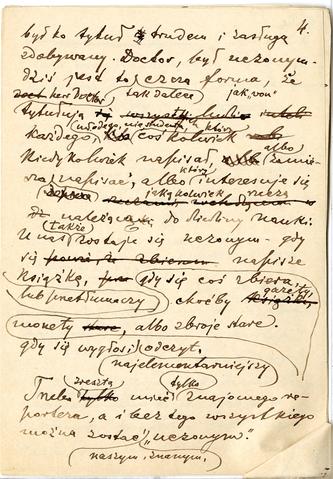 4.
był to tytuł trudem i zasługą
zdobywany. Doctor, był uczonym.
dziś jest to czcza forma, że
herr Doctor tak dalece jak „von"
tytułują
młodego, nie studenta, który
każdego, coś kolwiek
kiedykolwiek napisał, albo zamie-
rza napisać, albo który interesuje się
jakąkolwiek rzeczą
należącą do dziedziny nauki.
U nas także zostaje się uczonym – gdy
się napisze
książkę, gdy się coś zbiera,
lub przetłumaczy choćby gazety,
monety, albo zbroje stare.
gdy się wygłosi odczyt,
najelementarniejszy
Trzeba zresztą mieć tylko znajomego re-
portera, a i bez tego wszystkiego
można zostać „uczonym".
naszym, znanym,